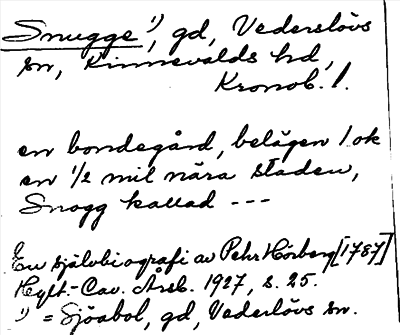 Snugge ¹), gd, Vederslövs
sn, Kinnevalds hd,
Kronob. l.
en bondegård, belägen 1 ok
en 1/2 mil nära staden,
Snogg kallad ---
En självbiografi av Pehr Hörberg [1787]
Hylt.-Cav. Årsb. 1927, s. 25.
¹) = Sjöabol, gd, Vederlövs sn.